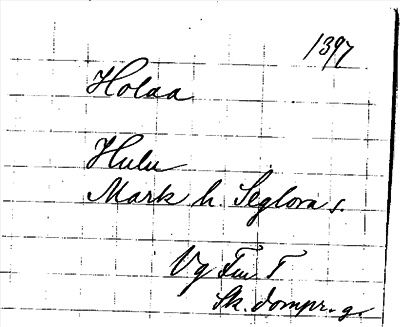 1397
Holaa
Hulu
Mark h. Seglora s.
Vg Fm. T
Sk. dompr. g.